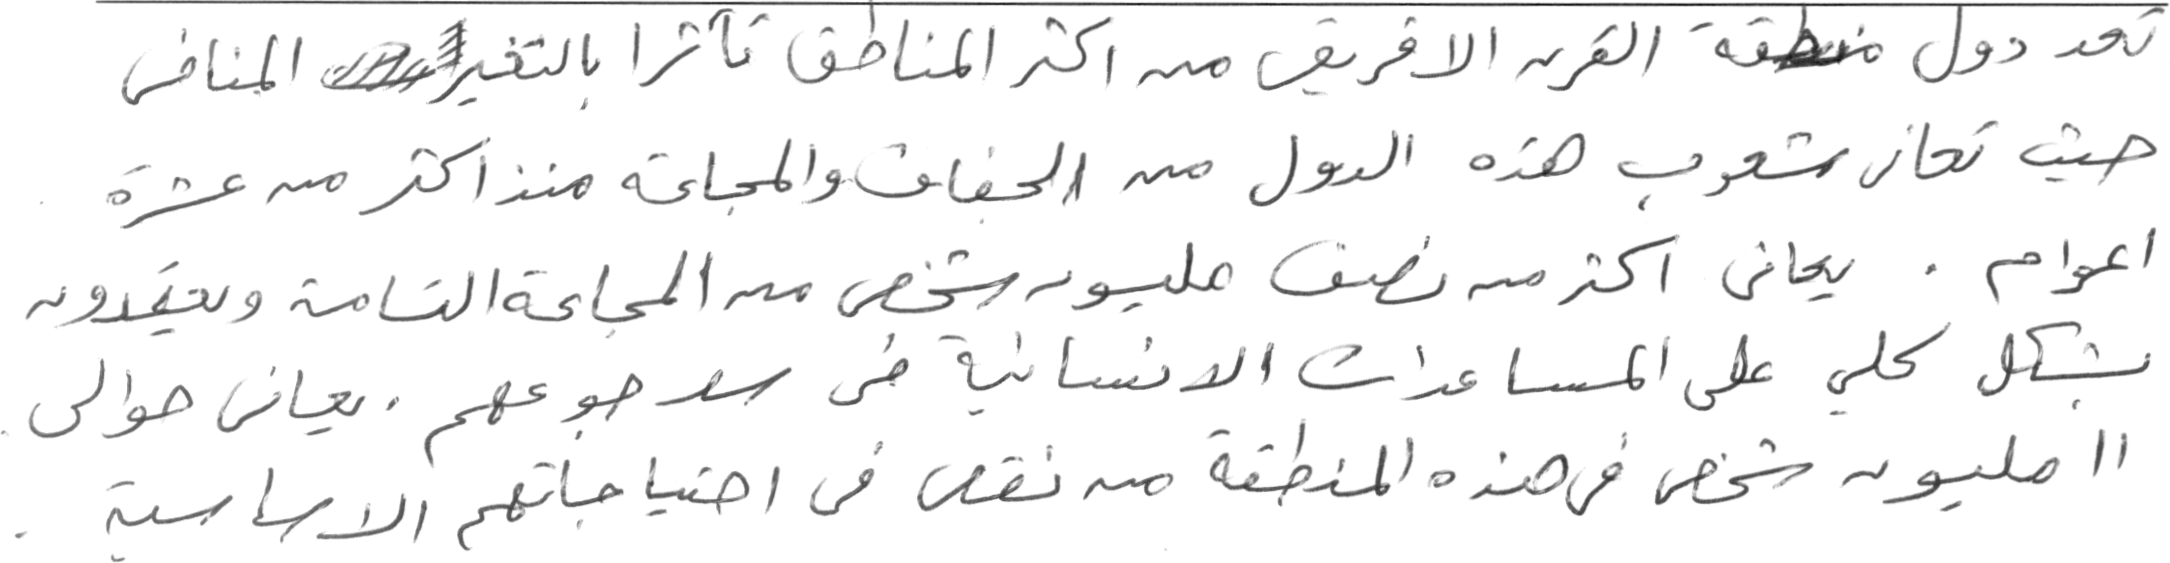 تعد دول منطقة القرن الافريقي من اكثر المناطق تأثرا بالتغير المناخي
حيث تعاني شعوب هذه الدول من الجفاف والمجاعة منذ اكثر من عشرة
اعوام . يعاني اكثر من نصف مليون شخص من المجاعة التامة ويعتمدون
بشكل كلي على المساعدات الانسانية في سد جوعهم . يعاني حوالي
١١ مليون شخص في هذه المنطقة من نقص في احتياجاتهم الاساسية .